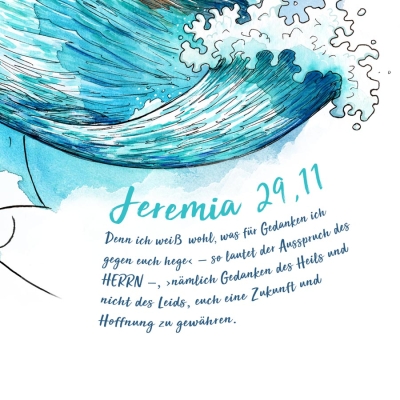 Jeremia 29,11
Denn ich weiß wohl, was für Gedanken ich
gegen euch hege‹ – so lautet der Ausspruch des
HERRN –, ›nämlich Gedanken des Heils und
nicht des Leids, euch eine Zukunft und
Hoffnung zu gewähren.